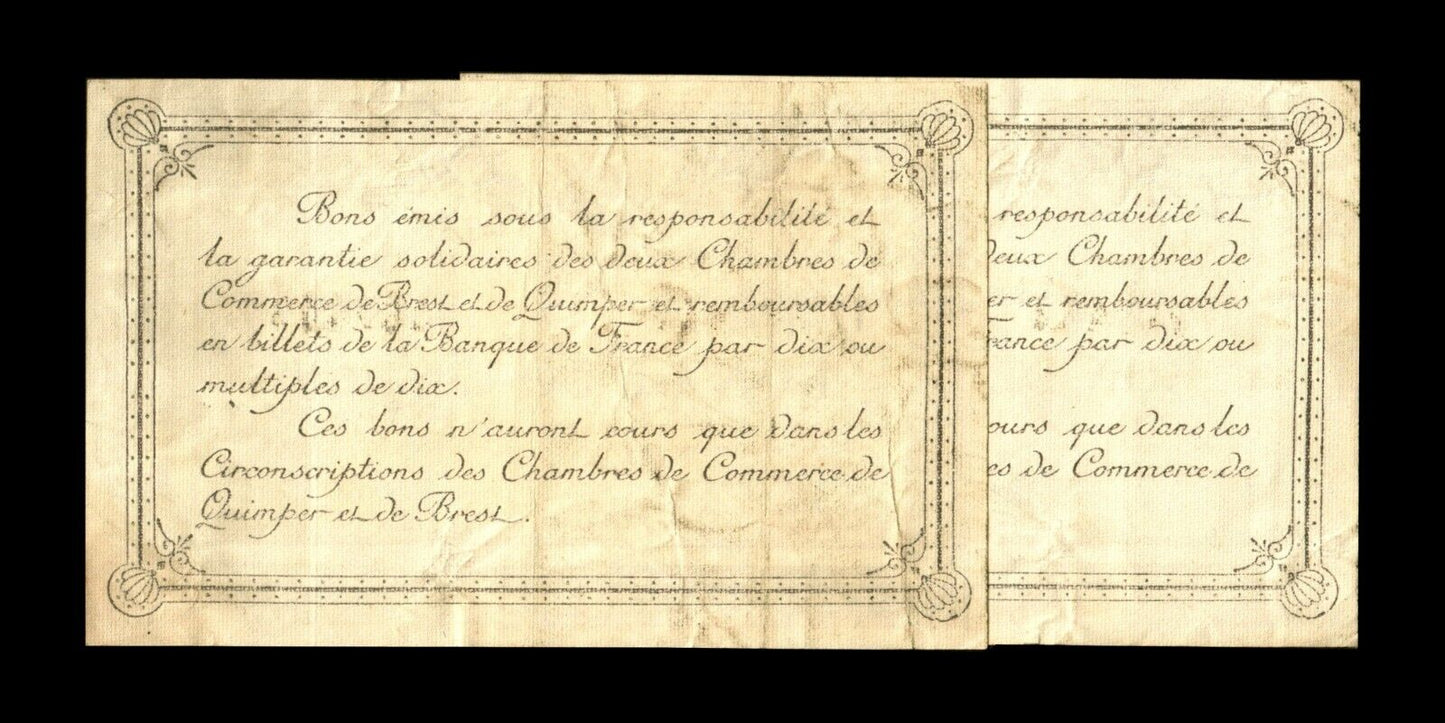 Bons émis sous la responsabilité et
la garantie solidaires des deux Chambres de
Commerce de Brest et de Quimper et remboursables
en billets de la Banque de France par dix ou
multiples de dix.
Ces bons n'auront cours que dans les
Circonscriptions des Chambres de Commerce de
Quimper et de Brest.
responsabilité et
deux Chambres de
er et remboursables
rance par dix ou
ours que dans les
es de Commerce de